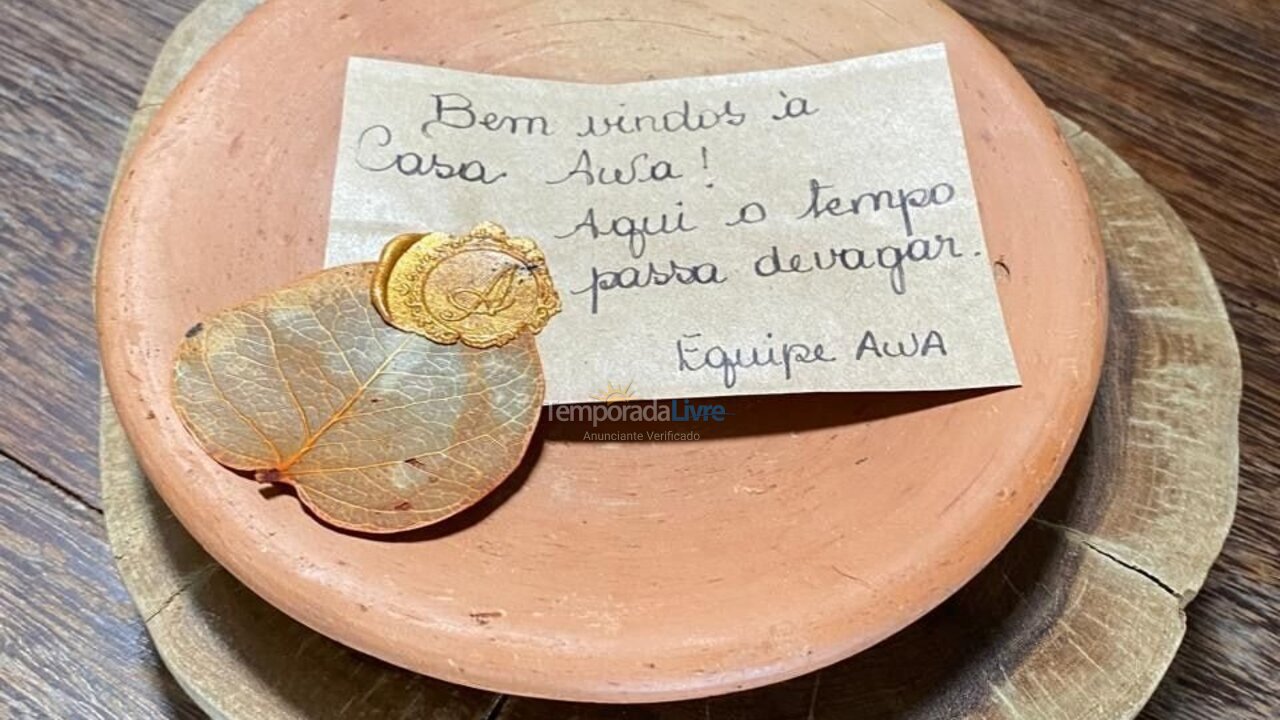 Bem vindos à
Casa AWa!
Aqui o tempo
passa devagar.
Equipe AWA
A
TemporadaLivre
Anunciante Verificado